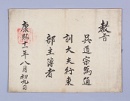 敎旨
吳道宗爲通
訓大夫行東
部主簿者
康熙十一年八月初九日